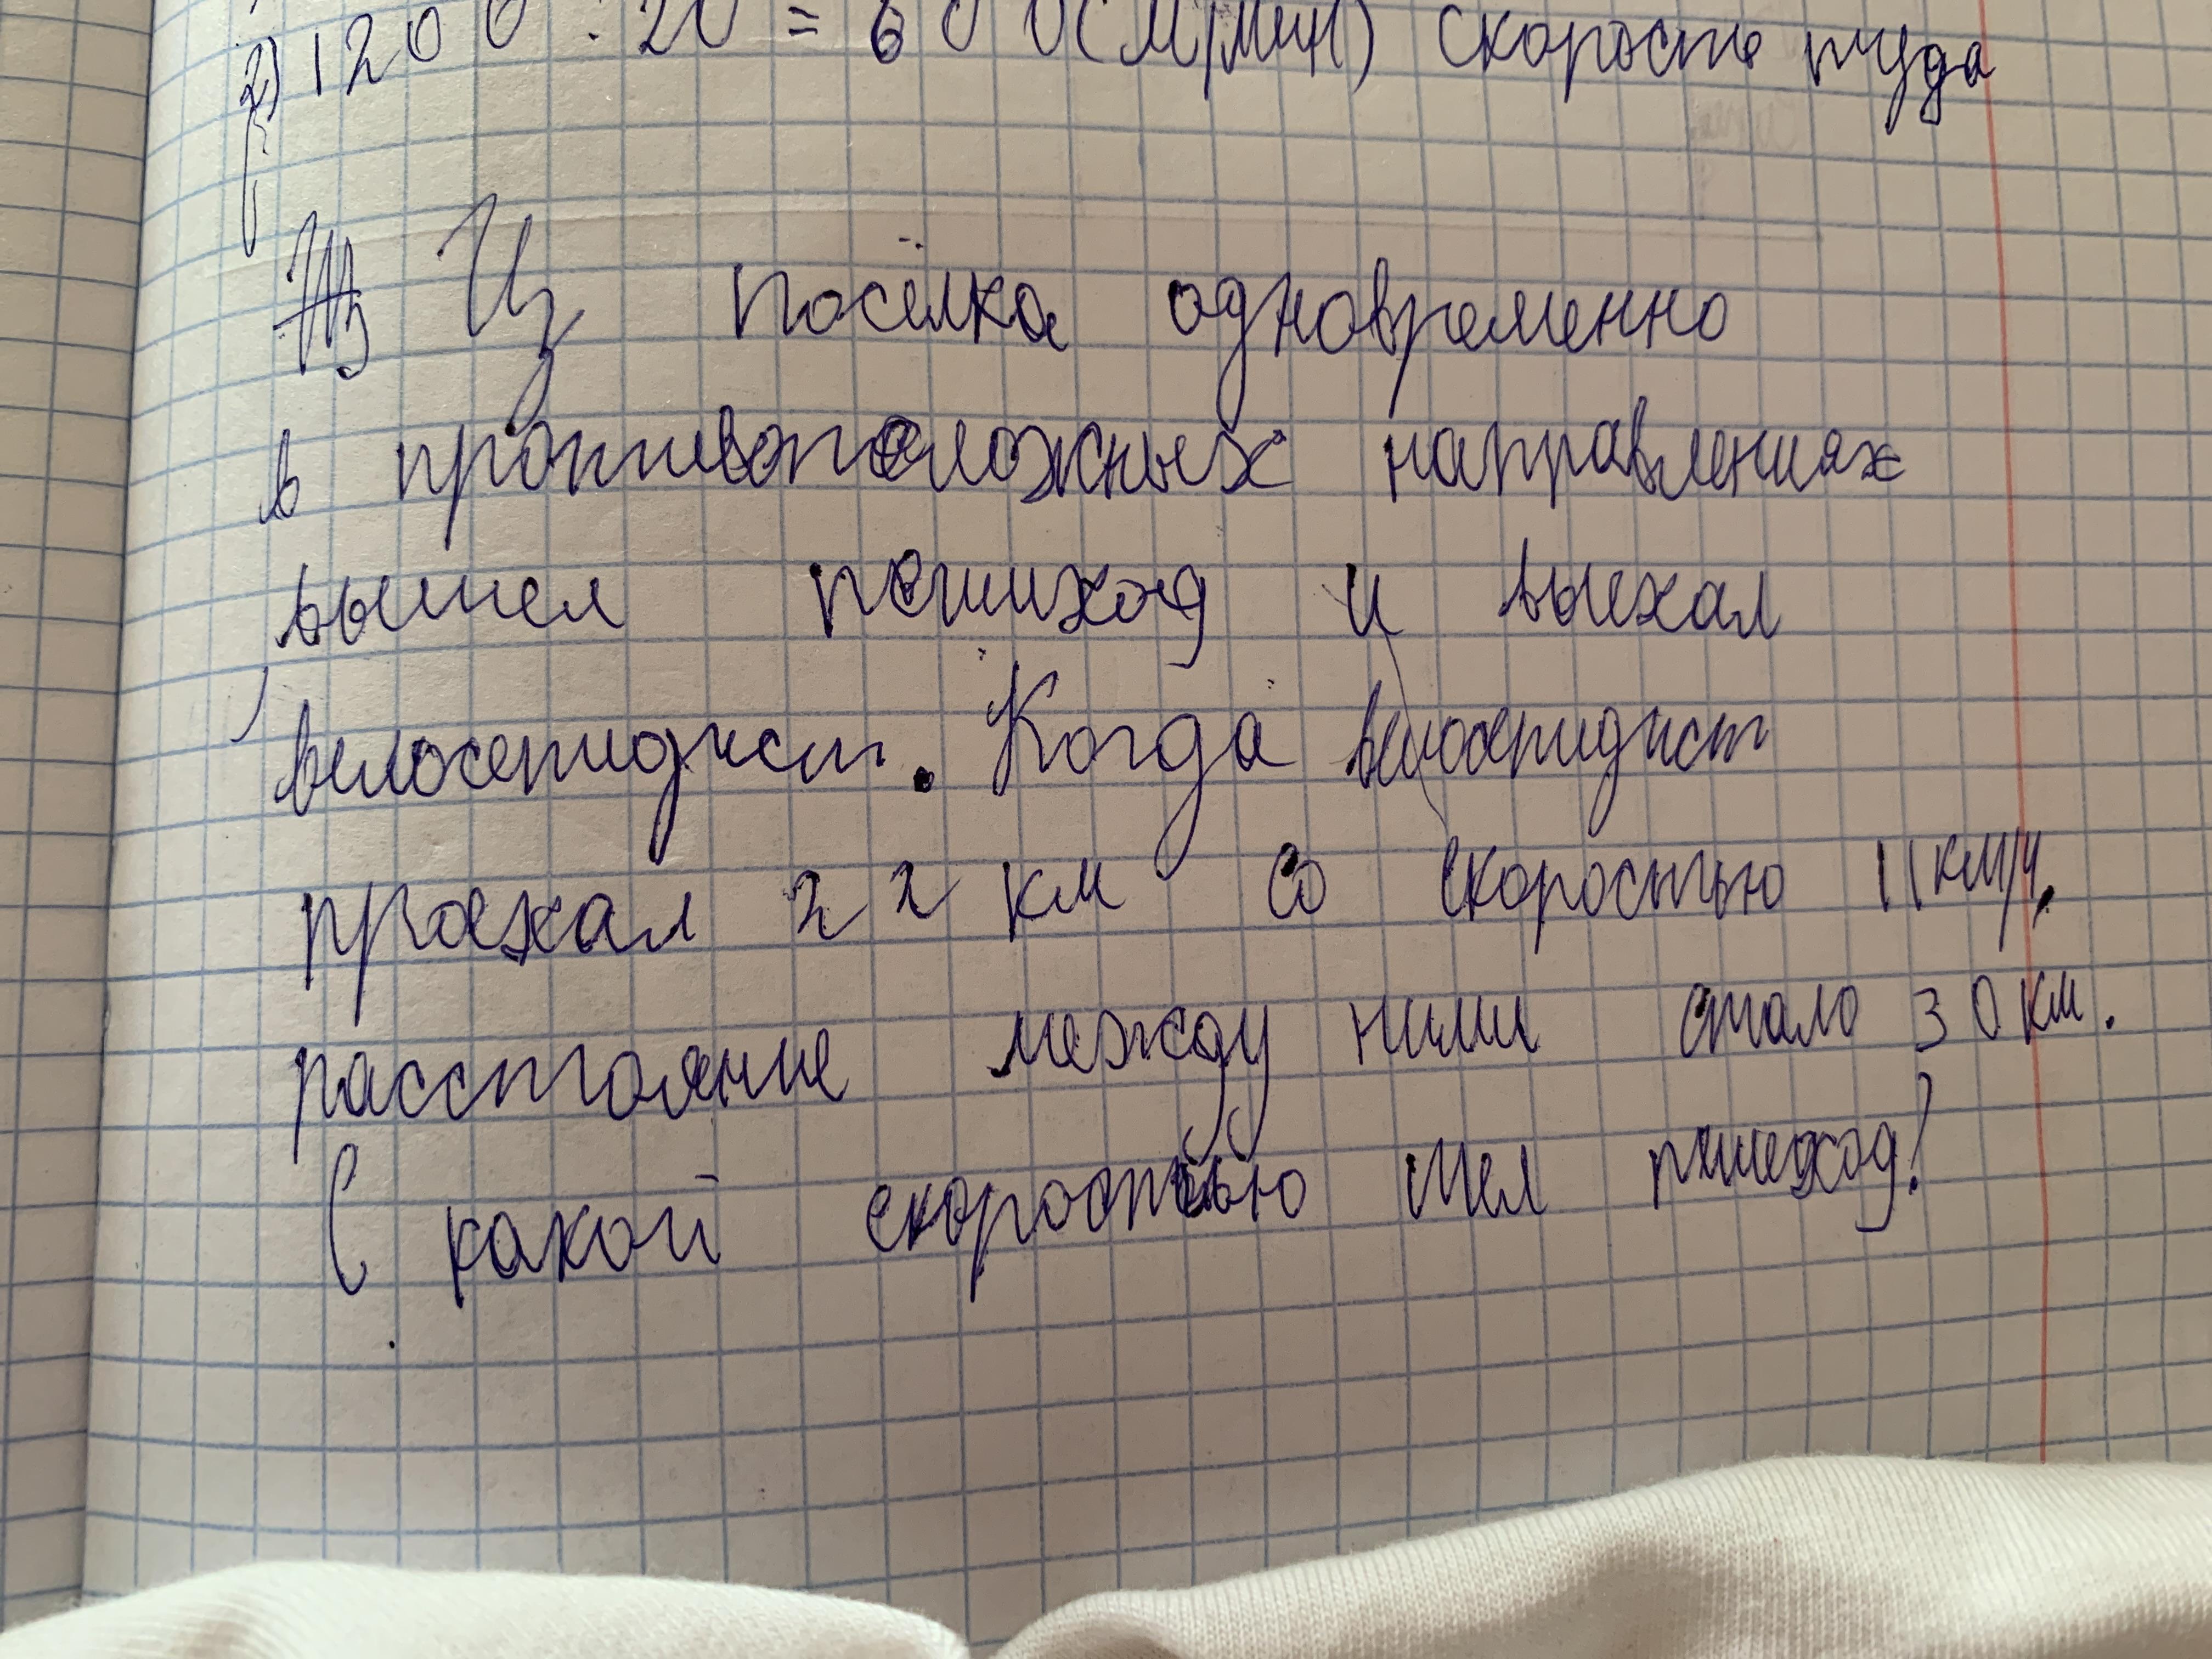 2) 1200 : 20 = 600 (м/мин) скорость туда
Из посёлка одновременно
в противоположных направлениях
вышел пешиход и выехал
велосепидист. Когда велосепидист
проехал 22 км со скоростью 11 км/ч,
расстояние между ними стало 30 км.
С какой скоростью шел пешеход?